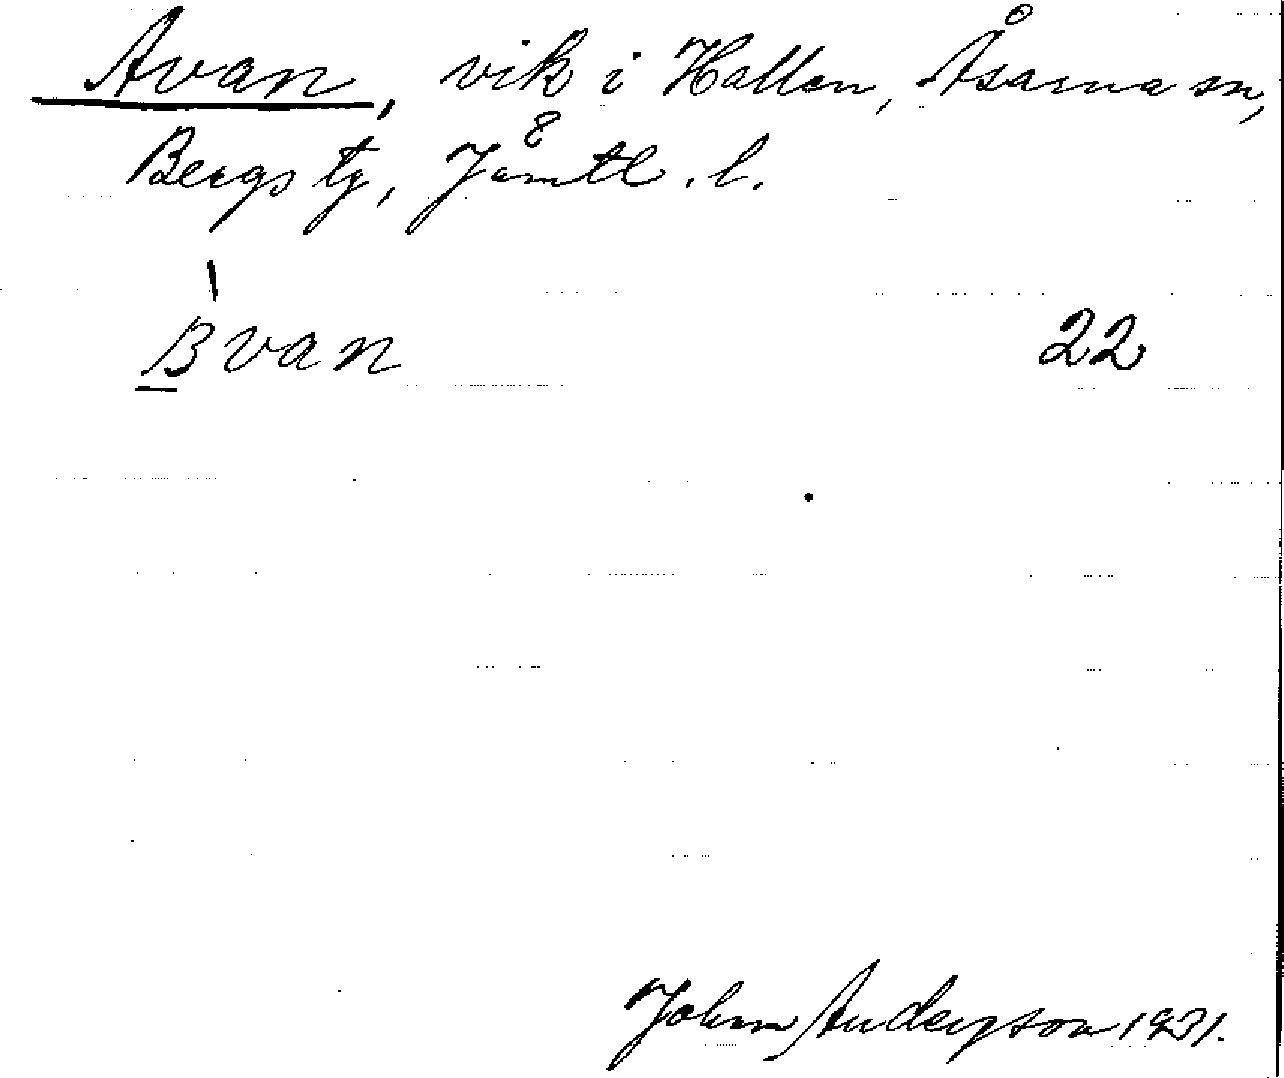 Avan, vik i Hallen, Åsarna sn,
Bergs tg, Jämtl. l.
Bvan 22
John Anderson 1931.